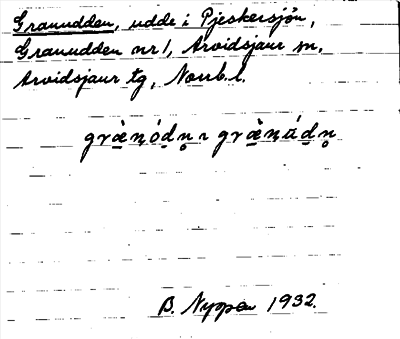 Granudden, udde i Pjeskersjön,
Granudden nr 1, Arvidsjaur sn,
Arvidsjaur tg, Norrb. l.
græ̀n̥ód̲n̥ ~ græ̀nád̲n̥
B. Nyppen 1932.